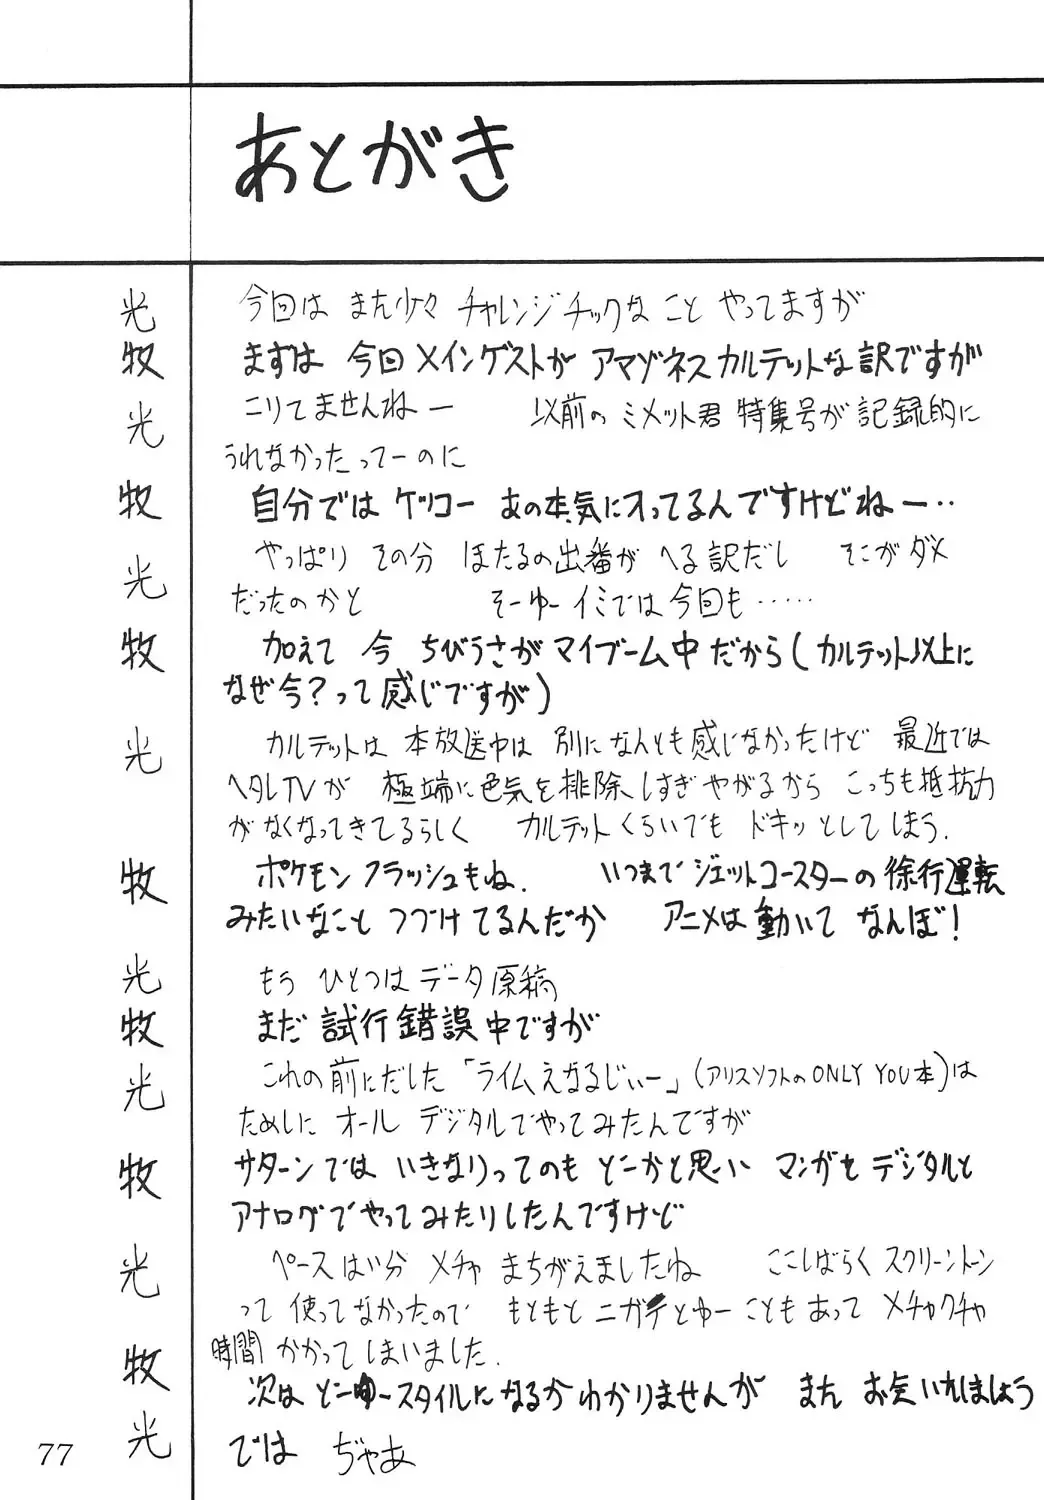 あとがき
光 今回は また少々 チャレンジチックな こと やってますが
牧 まずは 今回メインゲストが アマゾネスカルテットな訳ですが
光 こりてませんねー 以前の ミメット君 特集号が 記録的に
うれなかったってーのに
牧 自分では ケッコー あの本気に入ってるんですけどねー‥
光 やっぱり その分 ほたるの出番が へる訳だし そこがダメ
だったのかと そーゆーイミでは今回も……
牧 加えて 今 ちびうさがマイブーム中だから(カルテット以上に
なぜ今?って感じですが)
光 カルテットは 本放送中は 別になんとも感じなかったけど 最近では
ヘタレTVが 極端に色気を排除しすぎやがるから こっちも抵抗力
がなくなってきてるらしく カルテットくらいでも ドキッとしてしまう.
牧 ポケモンフラッシュもね. いつまでジェットコースターの徐行運転
みたいなこと つづけてるんだか アニメは動いて なんぼ!
光 もう ひとつはデータ原稿
牧 まだ試行錯誤中ですが
光 これの前にだした「ライムえなるじぃー」(アリスソフトのONLY YOU本)は
ためしに オール デジタルでやってみたんですが
牧 サターンでは いきなりってのも どーかと思い マンガをデジタルと
アナログでやってみたりしたんですけど
光 ペースはい分 メチャ まちがえましたね ここしばらくスクリーントーン
って 使ってなかったので もともと ニガテとゆー こともあって メチャクチャ
時間かかってしまいました.
牧 次は どーゆースタイルになるかわかりませんが また お会いしましょう
光 では ぢゃあ
77